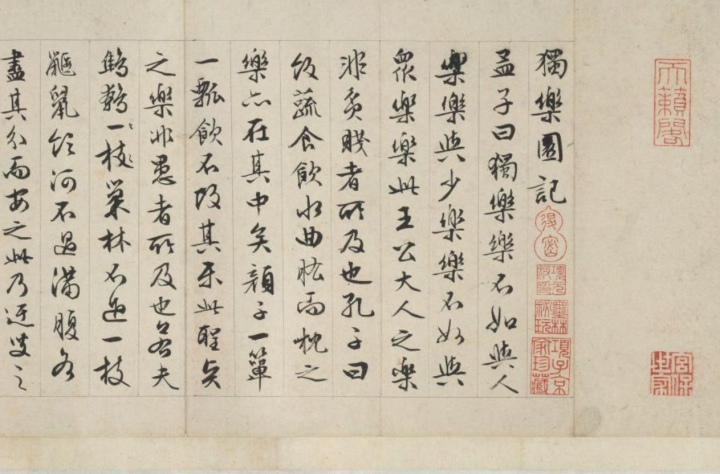 獨樂園記
孟子曰獨樂樂不如與人
樂樂與少樂樂不如與
眾樂樂此王公大人之樂
非貧賤者所及也孔子曰
飯蔬食飲水曲肱而枕之
樂亦在其中矣顏子一簞
一瓢飲不改其樂此聖賢
之樂非愚者所及也若夫
鷦鷯一枝巢林不過一枝
鼴鼠飲河不過滿腹各
盡其分而安之此乃迂叟之
天籟閣
宮保世家
退密
墨林祕玩
項子京家珍藏